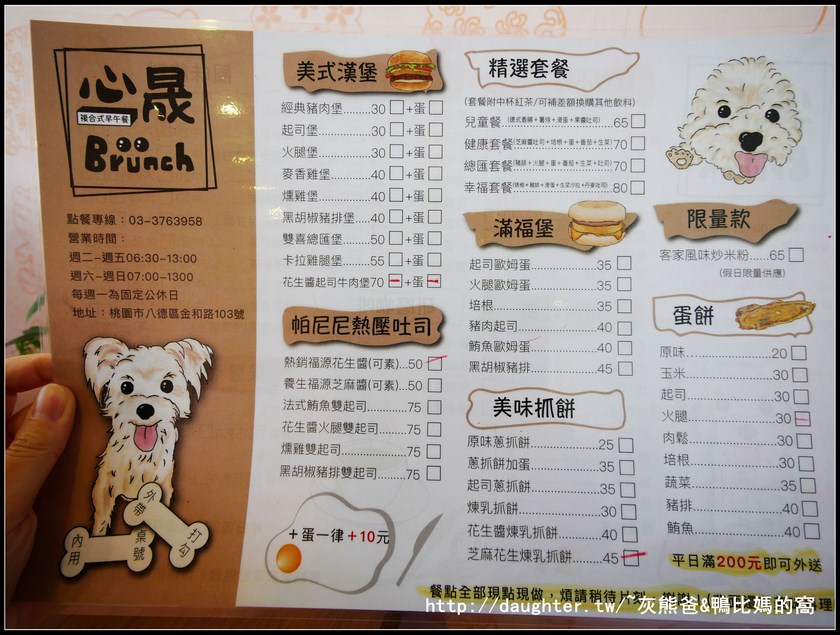 心晟
複合式早午餐
Brunch
點餐專線：03-3763958
營業時間：
週二~週五06:30-13:00
週六~週日07:00-1300
每週一為固定公休日
地址：桃園市八德區金和路103號
外帶
打勾
內用
桌號
美式漢堡
經典豬肉堡........30 +蛋
起司堡..............30 +蛋
火腿堡..............30 +蛋
麥香雞堡...........40 +蛋
燻雞堡..............40 +蛋
黑胡椒豬排堡....40 +蛋
雙喜總匯堡........50 +蛋
卡拉雞腿堡........55 +蛋
花生醬起司牛肉堡70 +蛋
帕尼尼熱壓吐司
熱銷福源花生醬(可素)...50
養生福源芝麻醬(可素)...50
法式鮪魚雙起司..........75
花生醬火腿雙起司.......75
燻雞雙起司................75
黑胡椒豬排雙起司.......75
+蛋一律+10元
精選套餐
(套餐附中杯紅茶/可補差額換購其他飲料)
兒童餐 65
健康套餐(芝麻醬吐司+培根+蛋+番茄+生菜)70
總匯套餐(豬排+火腿+蛋+番茄+生菜+吐司)70
幸福套餐 80
滿福堡
起司歐姆蛋................35
火腿歐姆蛋................35
培根.........................35
豬肉起司...................40
鮪魚歐姆蛋................40
黑胡椒豬排................45
美味抓餅
原味蔥抓餅................25
蔥抓餅加蛋................35
起司蔥抓餅................35
煉乳抓餅...................30
花生醬煉乳抓餅..........40
芝麻花生煉乳抓餅.......45
限量款
客家風味炒米粉.....65
(假日限量供應)
蛋餅
原味....................20
玉米....................30
起司....................30
火腿....................30
肉鬆....................30
培根....................30
蔬菜....................35
豬排....................40
鮪魚....................40
平日滿200元即可外送
餐點全部現點現做，煩請稍待片刻
http://daughter.tw/~灰熊爸&鴨比媽的窩